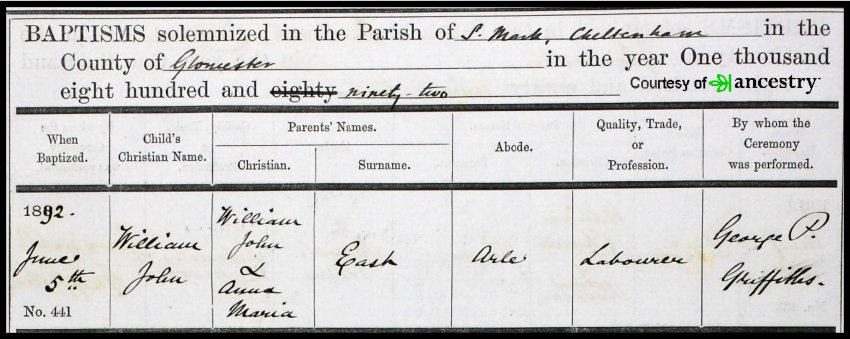 BAPTISMS solemnized in the Parish of S. Mark, Cheltenham in the
County of Gloucester in the year One thousand
eight hundred and eighty ninety-two
Courtesy of ancestry
When Baptized.
Child's Christian Name.
Parents' Names.
Christian.
Surname.
Abode.
Quality, Trade, or Profession.
By whom the Ceremony was performed.
1892.
June
5th
No. 441
William
John
William
John
&
Anna
Maria
East
Arle
Labourer
George P.
Griffiths.